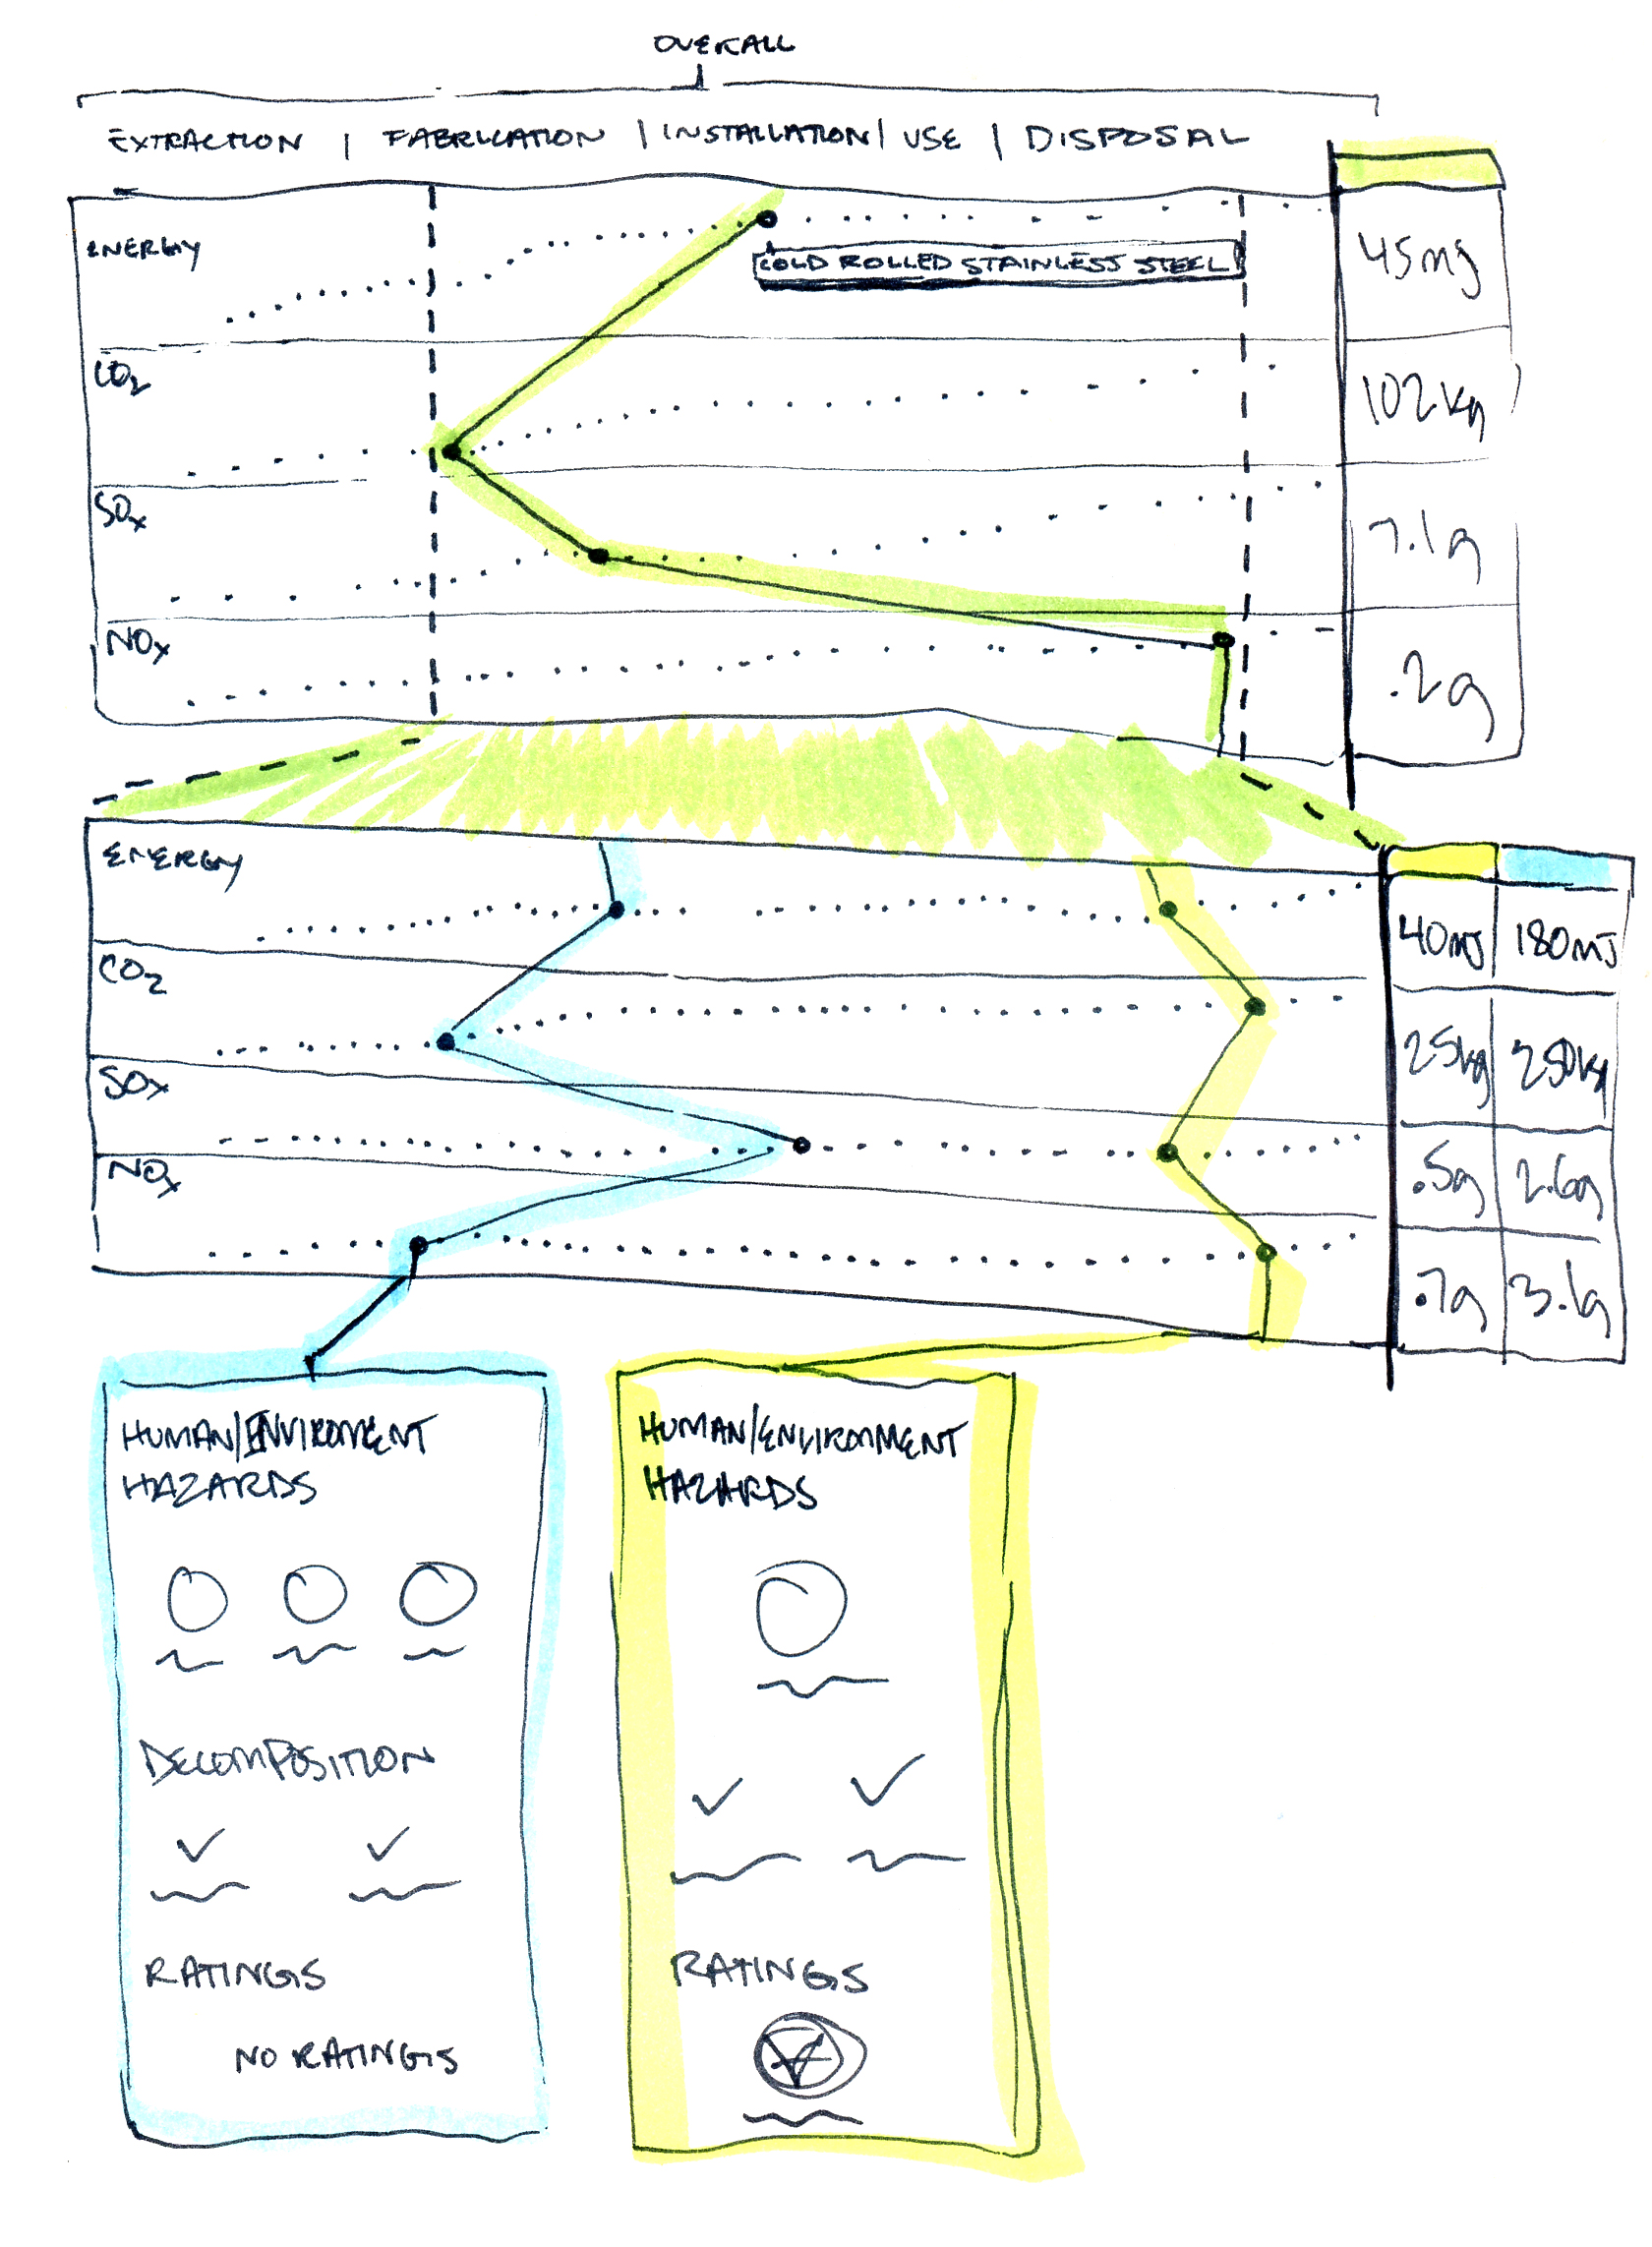 OVERALL
EXTRACTION | FABRICATION | INSTALLATION | USE | DISPOSAL
ENERGY
COLD ROLLED STAINLESS STEEL
45mJ
CO2
102kg
SOx
7.1g
NOx
.2g
ENERGY
40mJ 180mJ
CO2
25kg 250kg
SOx
.5g 2.6g
NOx
.7g 3.1g
HUMAN/ENVIROMENT
HAZARDS
DECOMPOSITION
RATINGS
NO RATINGS
HUMAN/ENVIRONMENT
HAZARDS
RATINGS